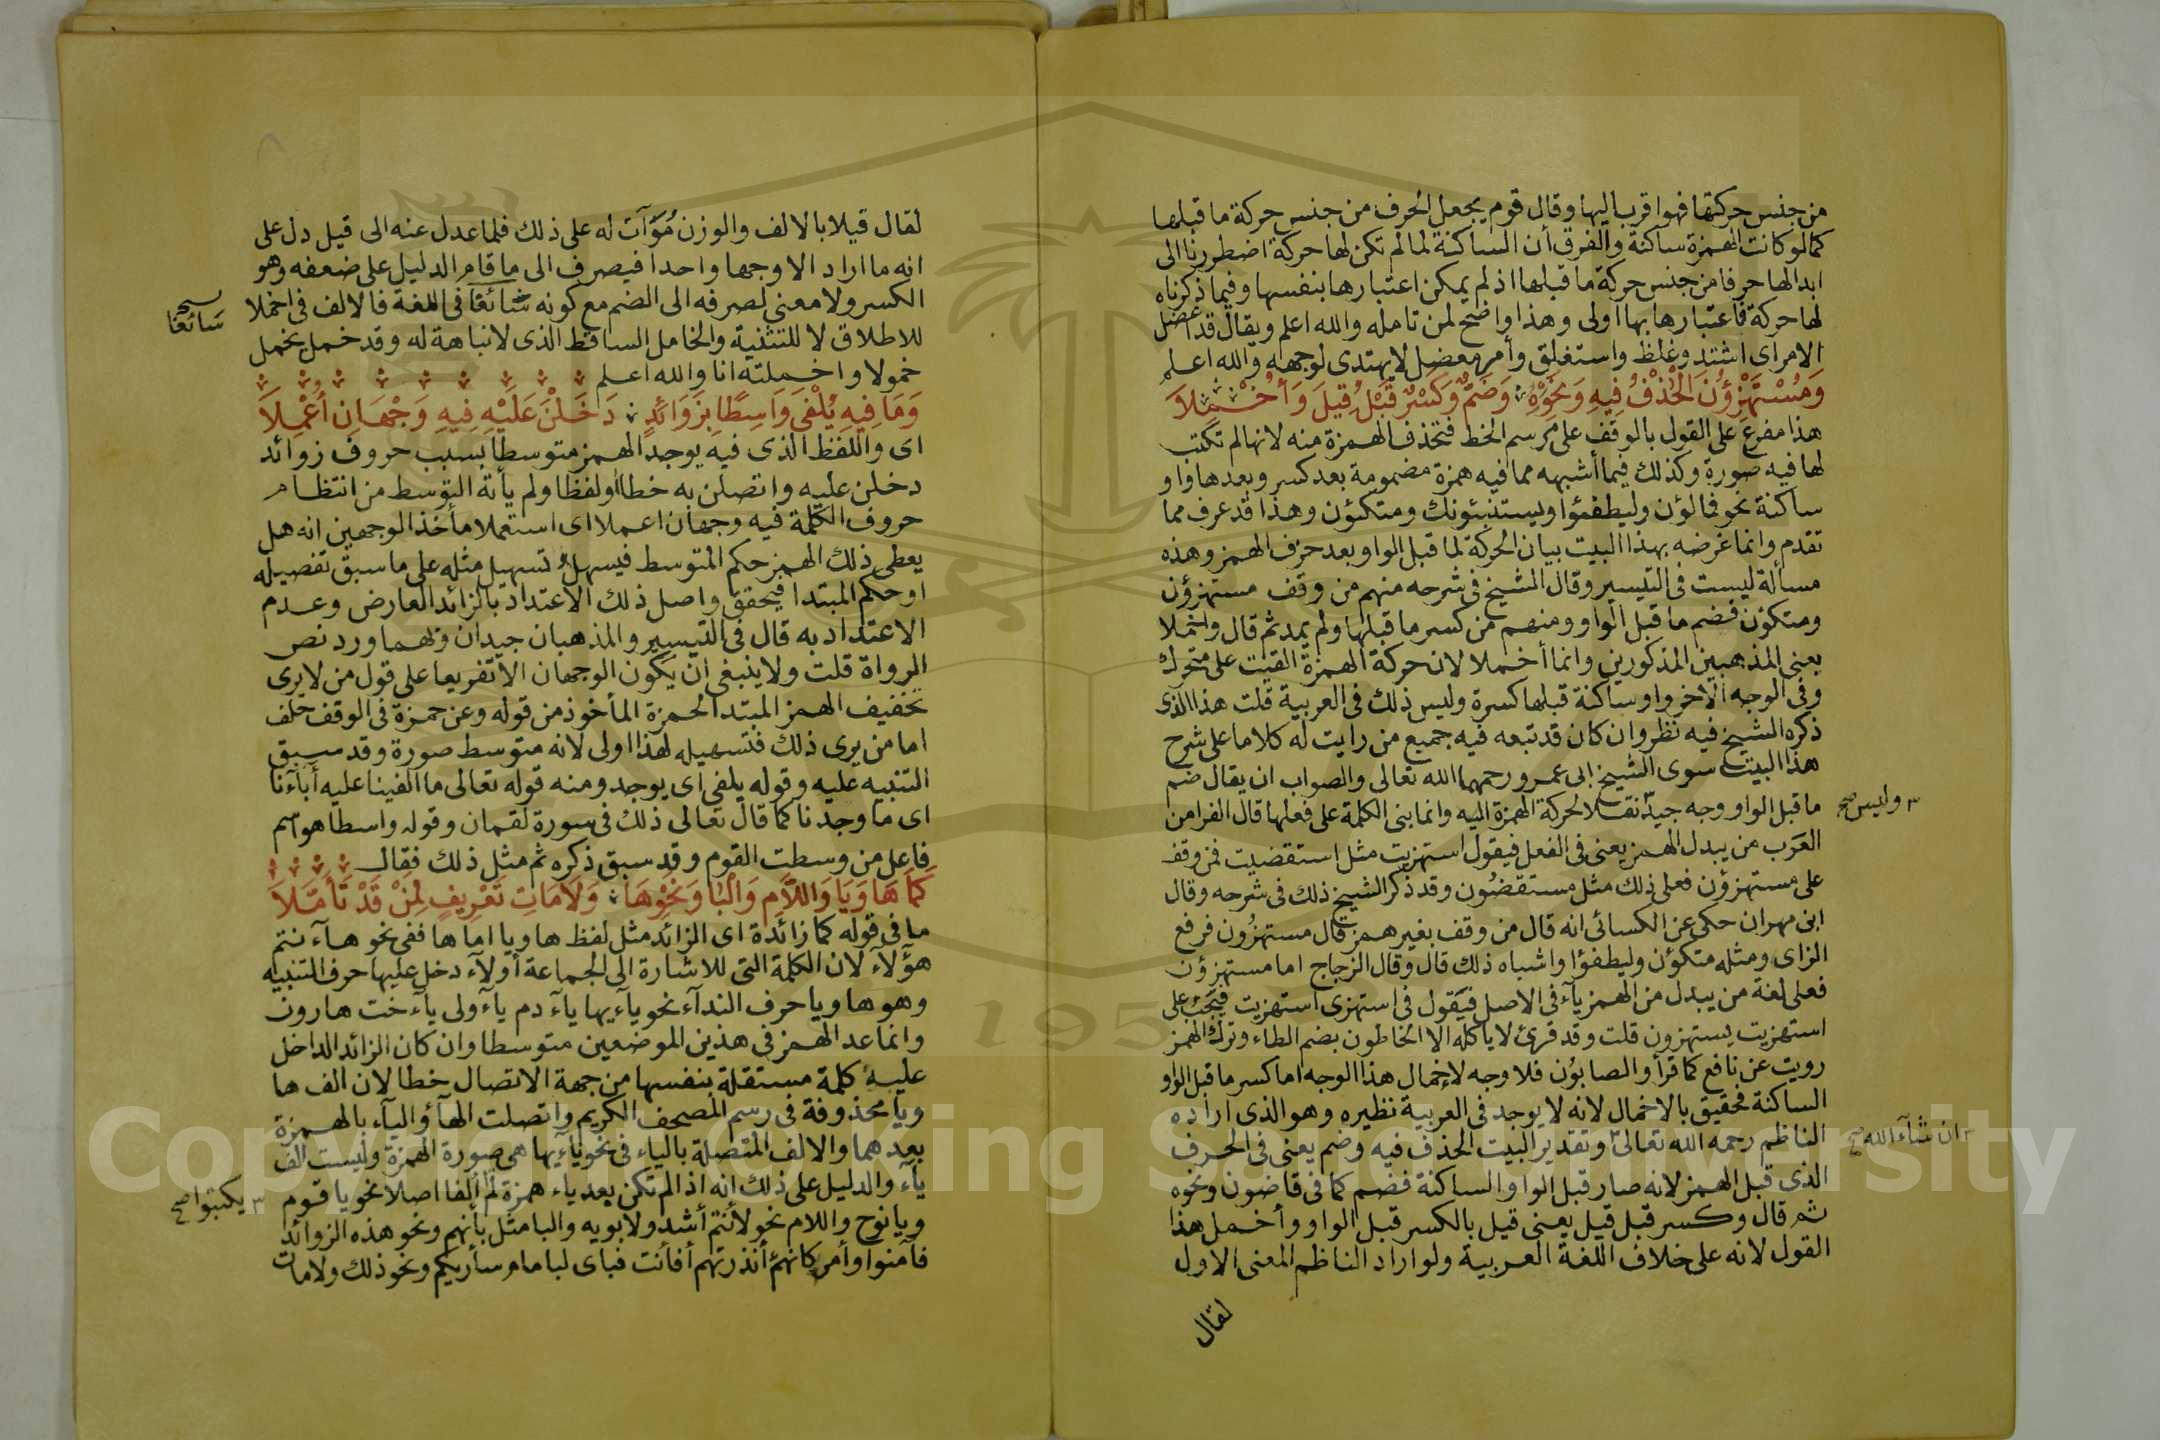 من جنس حركتها فهو اقرب اليها وقال قوم يجعل الحرف من جنس حركة ما قبلها
كما لو كانت الهمزة ساكنة والفرق أن الساكنة لما لم تكن لها حركة اضطررنا الى
ابدالها حرفا من جنس حركة ما قبلها اذ لم يمكن اعتبارها بنفسها وفيما ذكرناه
لها حركة فاعتبارها بها اولى وهذا واضح لمن تامله والله اعلم ويقال قد اعضل
الامر اى اشتد وغلظ واستغلق وأمر معضل لا يهتدى لوجهه والله اعلم
وَمُسْتَهْزِؤُنَ الْحَذْفُ فِيهِ وَنَحْوِهِ وَضَمٌّ وَكَسْرٌ قَبْلُ قِيلَ وَأُخْمِلاَ
هذا مفرع على القول بالوقف على مرسم الخط فتحذف الهمزة منه لانها لم تكتب
لها فيه صورة وكذلك فيما أشبهه مما فيه همزة مضمومة بعد كسر وبعدها واو
ساكنة نحو فمالؤن وليطفؤا ويستنبئونك ومتكئون وهذا قد عرف مما
تقدم وانما غرضه بهذا البيت بيان الحركة لما قبل الواو بعد حذف الهمز وهذه
مسألة ليست في التيسير وقال الشيخ في شرحه منهم من وقف مستهزؤن
ومتكؤن فضم ما قبل الواو ومنهم من كسر ما قبلها ولم يمد ثم قال واخملا
يعنى المذهبين المذكورين وانما أخملا لان حركة الهمزة القيت على متحرك
وفى الوجه الاخر واو ساكنة قبلها كسرة وليس ذلك فى العربية قلت هذا الذى
ذكره الشيخ فيه نظر وان كان قد تبعه فيه جميع من رايت له كلاما على شرح
هذا البيت سوى الشيخ ابى عمرو رحمهما الله تعالى والصواب ان يقال ضم
ما قبل الواو وجه جيد نقلا لحركة الهمزة اليه وانما بنى الكلمة على فعلها قال الفرا من
وليس صح
العَرب من يبدل الهمز يعنى فى الفعل فيقول استهزيت مثل استقضيت فمن وقف
على مستهزؤن فعلى ذلك مثل مستقضُون وقد ذكر الشيخ ذلك فى شرحه وقال
ابن مهران حكى عن الكسائى انه قال من وقف بغير همز قال مستهزُون فرفع
الزاى ومثله متكؤن وليطفؤا واشباه ذلك قال وقال الزجاج اما مستهزؤن
فعلى لغة من يبدل من الهمز يآء فى الاصل فيقول فى استهزى استهزيت فيجب على
استهزيت يستهزون قلت وقد قرئ لا ياكله الا الخاطون بضم الطاء وترك الهمز
رويت عن نافع كما قرأ والصابوُن فلا وجه لاخمال هذا الوجه اما كسر ما قبل الواو
الساكنة فحقيق بالاخمال لانه لا يوجد فى العربية نظيره وهو الذى اراده
الناظم رحمه الله تعالى وتقدير البيت الحذف فيه وضم يعنى فى الحرف
ان شآء الله صح
الذى قبل الهمز لانه صار قبل الواو الساكنة فضم كما فى قاضون ونحوه
ثم قال وكسر قبل قيل يعنى قيل بالكسر قبل الواو وأخمل هذا
القول لانه على خلاف اللغة العربية ولو اراد الناظم المعنى الاول
لقال
لقال قيلا بالالف والوزن مُؤآت له على ذلك فلما عدل عنه الى قيل دل على
انه ما اراد الا وجها واحدا فيصرف الى ما قام الدليل على ضعفه وهو
الكسر ولا معنى لصرفه الى الضم مع كونه شائعا فى اللغة فالالف فى اخملا
سَائغًا
للاطلاق لا للتثنية والخامل الساقط الذى لا نباهة له وقد خمل يخمل
خمولا واخملته انا والله اعلم
وَمَا فِيهِ يُلْفَى وَاسِطًا بِزَوَائِدٍ دَخَلْنَ عَلَيْهِ فِيهِ وَجْهَانِ أُعْمِلاَ
اى واللفظ الذى فيه يوجد الهمز متوسطا بسبب حروف زوائد
دخلن عليه واتصلن به خطا او لفظا ولم يأته التوسط من انتظام
حروف الكلمة فيه وجهان اعملا اى استعملا مأخذ الوجهين انه هل
يعطى ذلك الهمز حكم المتوسط فيسهل تسهيل مثله على ما سبق تفصيله
او حكم المبتدا فيحقق واصل ذلك الاعتداد بالزائد العارض وعدم
الاعتداد به قال فى التيسير والمذهبان جيدان وبهما ورد نص
الرواة قلت ولا ينبغى ان يكون الوجهان الا تفريعا على قول من لا يرى
تخفيف الهمز المبتدا لحمزة المأخوذ من قوله وعن حمزة فى الوقف خلف
اما من يرى ذلك فتسهيله لهذا اولى لانه متوسط صورة وقد سبق
التنبيه عليه وقوله يلفى اى يوجد ومنه قوله تعالى ما الفينا عليه أبآءنا
اى ما وجدنا كما قال تعالى ذلك فى سورة لقمان وقوله واسطا هو اسم
فاعل من وسطت القوم وقد سبق ذكره ثم مثل ذلك فقال
كَمَا هَا وَيَا وَاللاَّمِ وَالْبَا وَنَحْوِهَا وَلاَمَاتِ تَعْرِيفٍ لِمَنْ قَدْ تَأَمَّلاَ
ما فى قوله كما زائدة اى الزائد مثل لفظ ها ويا اما ها ففى نحو هآءنتم
هؤلآء لان الكلمة التى للاشارة الى الجماعة أولآء دخل عليها حرف التنبيه
وهو ها ويا حرف الندآء نحو يآءيها يآءدم يآءولى يآءخت هارون
وانما عد الهمز فى هذين الموضعين متوسطا وان كان الزائد الداخل
عليه كلمة مستقلة بنفسها من جهة الاتصال خطا لان الف ها
ويا محذوفة فى رسم المصحف الكريم واتصلت الهآء واليآء بالهمزة
بعدهما والالف المتصلة بالياء فى نحو يآءيها هى صورة الهمزة وليست الف
يآء والدليل على ذلك انه اذا لم تكن بعد ياء همزة لم الفا اصلا نحو يا قوم
يكتبوا صح
ويا نوح واللام نحو لأنتم أشد ولابويه والبا مثل بأنهم ونحو هذه الزوائد
فآمنوا وأمر كانهم أنذرتهم أفأنت فباى لبامام سأريكم ونحو ذلك ولامات
Copyright © King Saud University
195